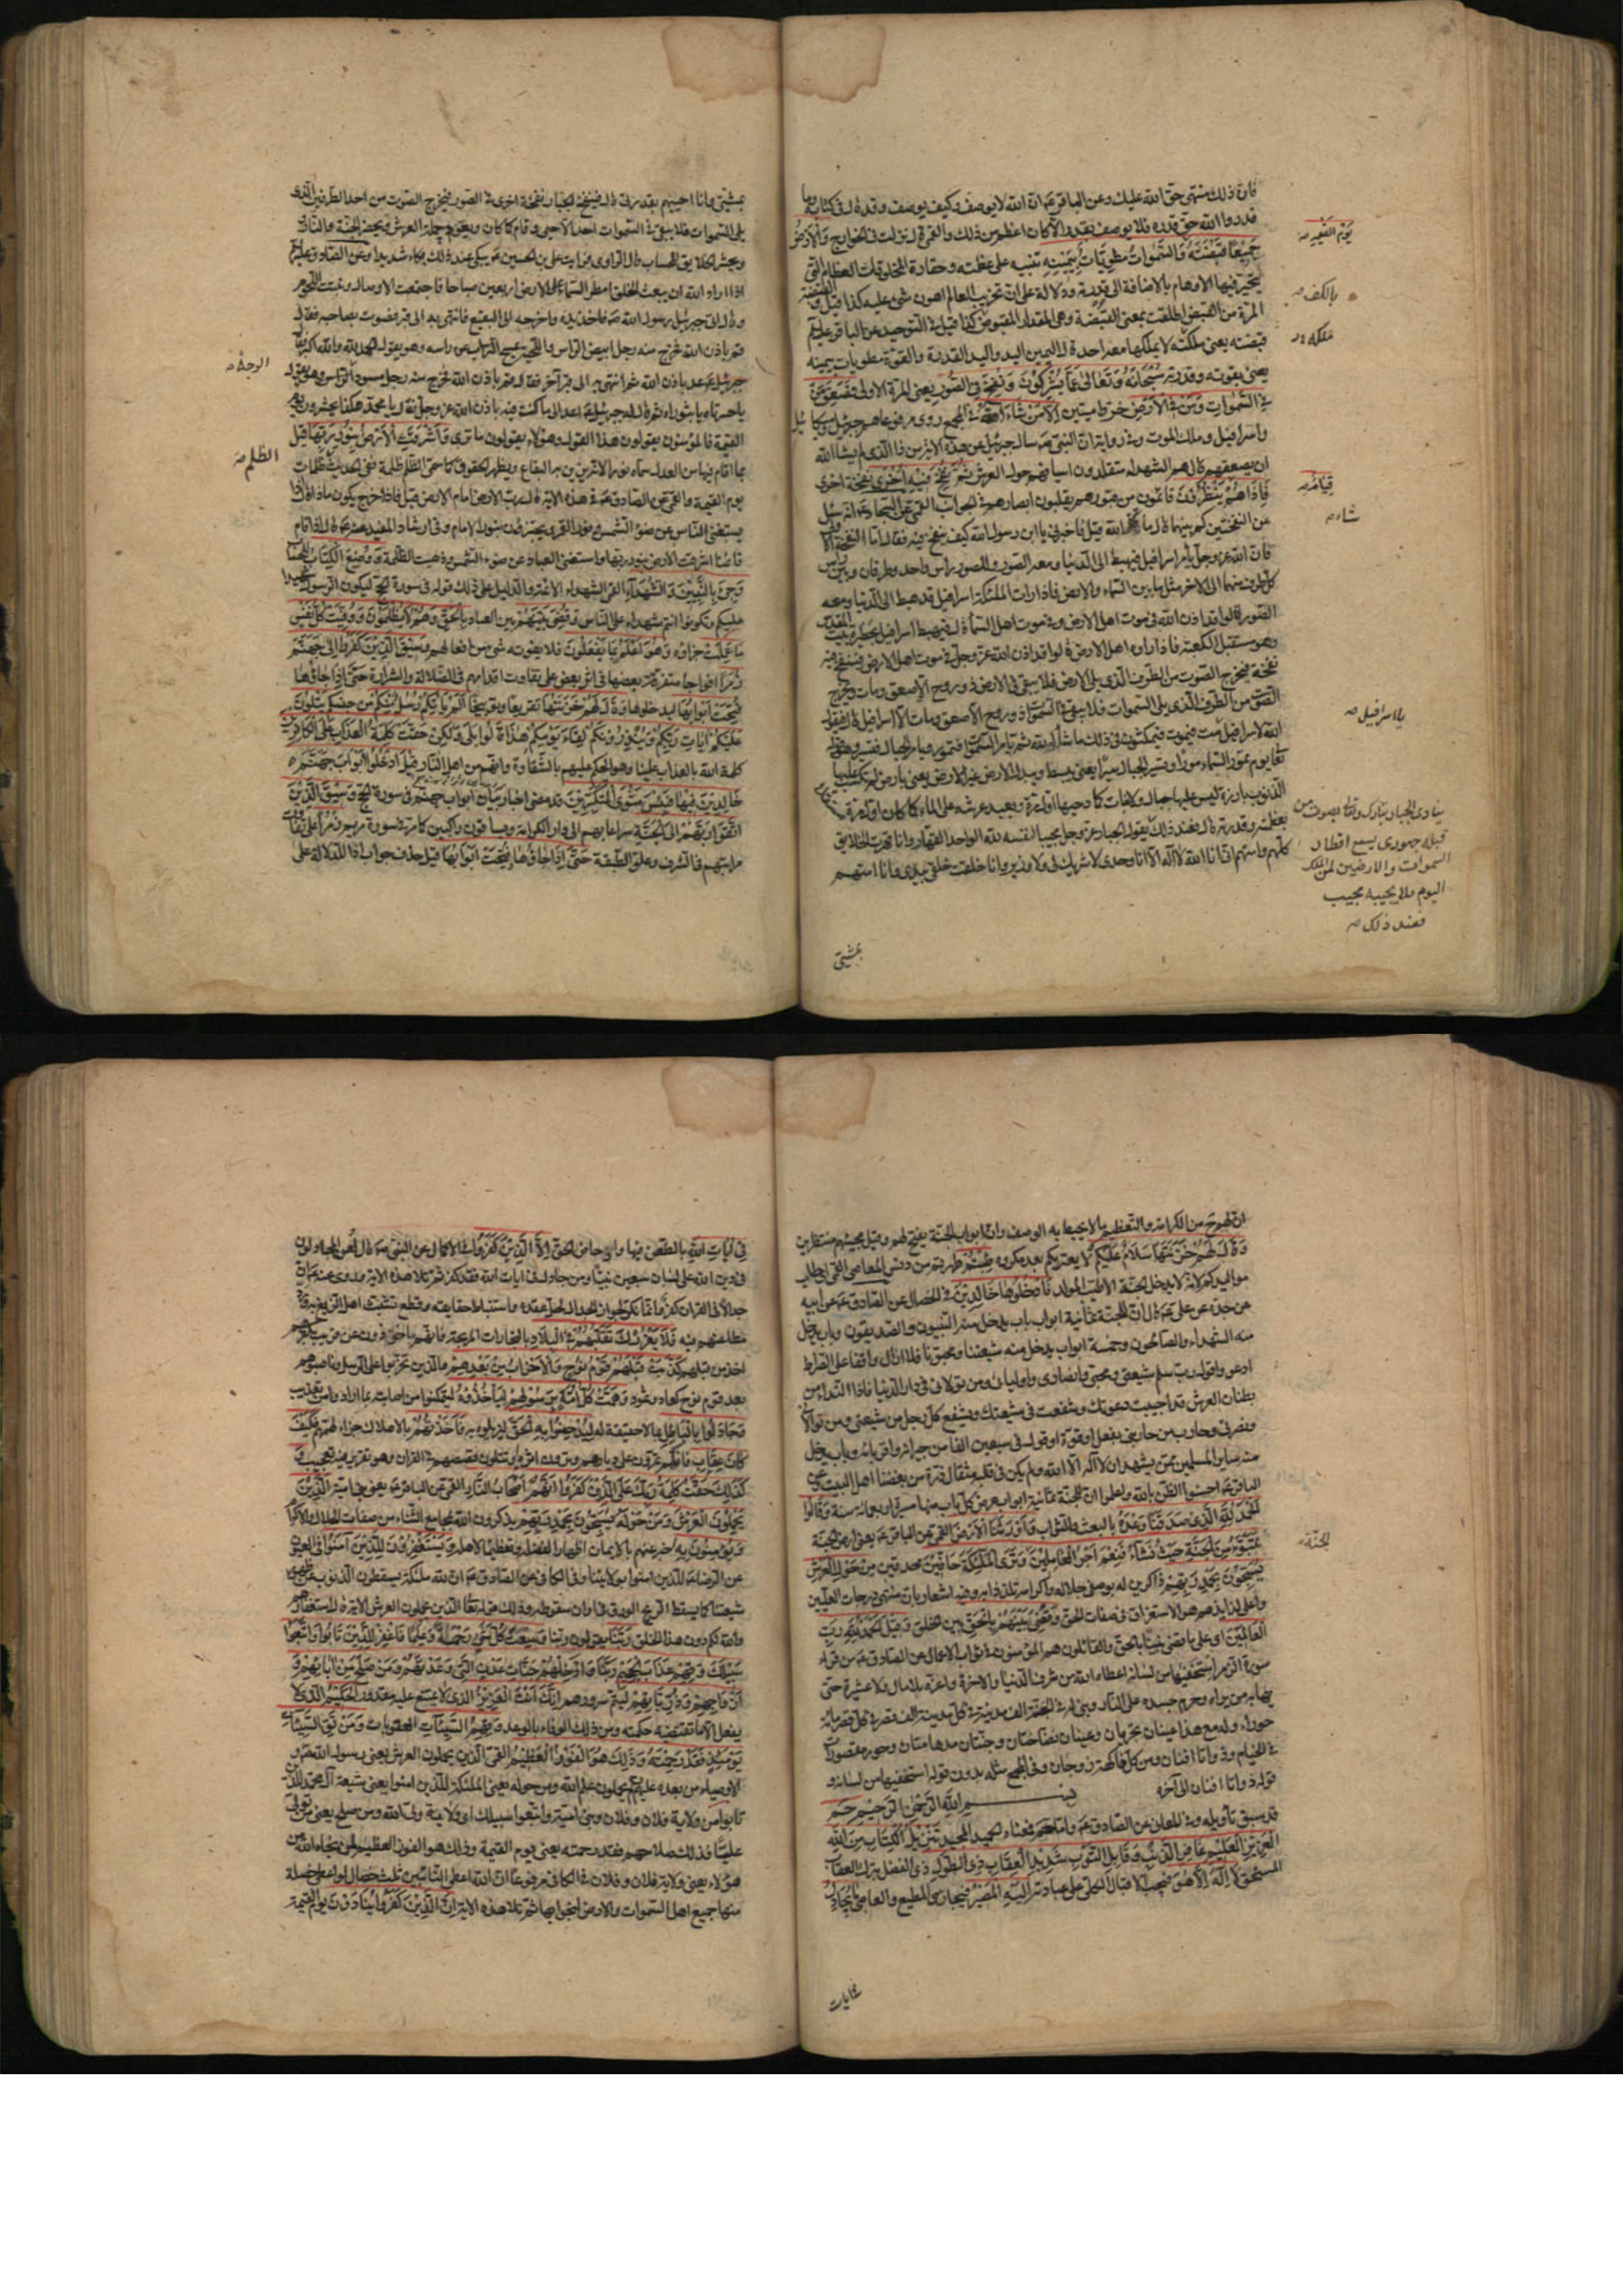 فان ذلك منتهى حق الله عليك وعن الباقر ع ان الله لا يوصف وكيف يوصف وقد قال في كتابه وما
قدروا الله حق قدره فلا يوصف بقدر الا كان اعظم من ذلك والقمي قال نزلت في الخوارج وَالْاَرْضُ
جَمِيعًا قَبْضَتُهُ وَالسَّمٰوَاتُ مَطْوِيَّاتٌ بِيَمِينِهِ تنبيه على عظمته وحقارة المخلوقات العظام التي
يتحير فيها الاوهام بالاضافة الى قدرته ودلالة على ان تخريب العالم اهون شيء عليه كذا قيل والقبضة
المرة من القبض اطلقت بمعنى القُبضة وهي المقدار المقبوض كذا قيل في التوحيد عن الباقر
قبضته يعني ملكته لا يملكها معه احد قال اليمين اليد واليد القدرة والقوة مطويات بيمينه
يعني بقوته وقدرته سُبْحَانَهُ وَتَعَالٰى عَمَّا يُشْرِكُونَ وَنُفِخَ فِي الصُّورِ يعني المرة الاولى فَصَعِقَ مَنْ
فِي السَّمٰوَاتِ وَمَنْ فِي الْاَرْضِ خروا ميتين اِلَّا مَنْ شَاءَ اللّٰهُ في المجمع روي مرفوعا هم جبرئيل وميكائيل
واسرافيل وملك الموت وفي رواية ان النبي ص سال جبرئيل عن هذه الاية من ذا الذي لم يشا الله
ان يصعقهم قال هم الشهداء متقلدون اسيافهم حول العرش ثُمَّ نُفِخَ فِيهِ اُخْرٰى نفخة اخرى
فَاِذَا هُمْ قِيَامٌ يَنْظُرُونَ قائمون من قبورهم يقلبون ابصارهم في الجوانب القمي عن السجاد ع انه سئل
عن النفختين كم بينهما قال ما شاء الله قيل فاخبرني يا ابن رسول الله كيف ينفخ فيه فقال اما النفخة الاولى
فان الله عز وجل يأمر اسرافيل فيهبط الى الدنيا ومعه الصور وللصور رأس واحد وطرفان وبين رأس
كل طرف منهما الى الاخر مثل ما بين السماء والارض فاذا رات الملئكة اسرافيل قد هبط الى الدنيا ومعه
الصور قالوا قد اذن الله في موت اهل الارض وفي موت اهل السماء قال فيهبط اسرافيل بحظيرة بيت المقدس
وهو مستقبل الكعبة فاذا راوه اهل الارض قالوا قد اذن الله عز وجل في موت اهل الارض فينفخ فيه
نفخة فيخرج الصوت من الطرف الذي يلي الارض فلا يبقى في الارض ذو روح الا صعق ومات ويخرج
الصوت من الطرف الذي يلي السموات فلا يبقى في السموات ذو روح الا صعق ومات الا اسرافيل قال فيقول
الله لاسرافيل يا اسرافيل مت فيموت فيمكثون في ذلك ما شاء الله ثم يامر السموات فتمور ويامر الجبال فتسير وهو قوله
تعا يوم تمور السماء مورًا وتسير الجبال سيرًا يعني يبسط ويبدل الارض غير الارض يعني بارض لم تكسب عليها
الذنوب بارزة ليس عليها جبال ولا نبات كما دحيها اول مرة ويعيد عرشه على الماء كما كان اول مرة
بعظمته وقدرته قال فعند ذلك يقول الجبار عز وجل مجيبا لنفسه لله الواحد القهار وانا قهرت الخلائق
كلهم وامتهم اني انا الله لا اله الا انا وحدي لا شريك لي ولا وزير وانا خلقت خلقي بيدي وانا امتهم
يَوْمَ الْقِيٰمَةِ
بالكف
ملكه
قِيَامٌ
شاء
يا اسرافيل
ينادي الجبار تبارك وتعالى بصوت من
قبله جهوري يسمع اقطار
السموات والارضين لمن الملك
اليوم فلا يجيبه مجيب
فعند ذلك
بمشيتي
بمشيتي وانا احييهم بقدرتي قال فينفخ الجبار نفخة اخرى في الصور فيخرج الصوت من احد الطرفين الذي
يلي السموات فلا يبقى في السموات احد الا حيي وقام كما كان ويعود حملة العرش ويحضر الجنة والنار
ويحشر الخلايق للحساب قال الراوي فرايت علي بن الحسين ع يبكي عند ذلك بكاء شديدا وعن الصادق ع
اذا اراد الله ان يبعث الخلق امطر السماء على الارض اربعين صباحا فاجتمعت الاوصال ونبتت اللحوم
وقال اتى جبرئيل رسول الله ص فاخذ بيده واخرجه الى البقيع فانتهى به الى قبر فصوت بصاحبه فقال
قم باذن الله فخرج منه رجل ابيض الراس واللحية يمسح التراب عن راسه وهو يقول الحمد لله والله اكبر فقال
جبرئيل ع عد باذن الله ثم انتهى به الى قبر آخر فقال قم باذن الله فخرج منه رجل مسود الوجه وهو يقول
يا حسرتاه يا ثبوراه ثم قال له جبرئيل ع عد الى ما كنت فيه باذن الله عز وجل فقال يا محمد هكذا يحشرون يوم
القيمة فالمؤمنون يقولون هذا القول وهؤلاء يقولون ما ترى وَاَشْرَقَتِ الْاَرْضُ بِنُورِ رَبِّهَا قيل
بما اقام فيها من العدل سماه نورا لانه يزين به البقاع ويظهر الحقوق كما سمى الظلم ظلمة ففي الحديث ظلمات
يوم القيمة والقمي عن الصادق ع في هذه الاية قال رب الارض امام الارض قيل فاذا خرج يكون ماذا قال اذا
يستغني الناس عن ضوء الشمس ونور القمر ويجتزئون بنور الامام وفي ارشاد المفيد عنه ع قال اذا قام
قائمنا اشرقت الارض بنور ربها واستغنى العباد عن ضوء الشمس وذهبت الظلمة وَوُضِعَ الْكِتَابُ للحساب
وَجِيءَ بِالنَّبِيِّينَ وَالشُّهَدَاءِ القمي الشهداء الائمة والدليل على ذلك قوله في سورة الحج ليكون الرسول شهيدا
عليكم وتكونوا انتم شهداء على الناس وَقُضِيَ بَيْنَهُمْ بين العباد بِالْحَقِّ وَهُمْ لَا يُظْلَمُونَ وَوُفِّيَتْ كُلُّ نَفْسٍ
مَا عَمِلَتْ جزاؤه وَهُوَ اَعْلَمُ بِمَا يَفْعَلُونَ فلا يفوته شيء من افعالهم وَسِيقَ الَّذِينَ كَفَرُوا اِلٰى جَهَنَّمَ
زُمَرًا افواجا متفرقة بعضها في اثر بعض على تفاوت اقدامهم في الضلالة والشرارة حَتّٰى اِذَا جَاؤُهَا
فُتِحَتْ اَبْوَابُهَا ليدخلوها وَقَالَ لَهُمْ خَزَنَتُهَا تقريعا وتوبيخا اَلَمْ يَأْتِكُمْ رُسُلٌ مِنْكُمْ من جنسكم يَتْلُونَ
عَلَيْكُمْ اٰيَاتِ رَبِّكُمْ وَيُنْذِرُونَكُمْ لِقَاءَ يَوْمِكُمْ هٰذَا قَالُوا بَلٰى وَلٰكِنْ حَقَّتْ كَلِمَةُ الْعَذَابِ عَلَى الْكَافِرِينَ
كلمة الله بالعذاب علينا وهو الحكم عليهم بالشقاوة وانهم من اهل النار قِيلَ ادْخُلُوا اَبْوَابَ جَهَنَّمَ
خَالِدِينَ فِيهَا فَبِئْسَ مَثْوَى الْمُتَكَبِّرِينَ قد مضى اخبار بيان ابواب جهنم في سورة الحج وَسِيقَ الَّذِينَ
اتَّقَوْا رَبَّهُمْ اِلَى الْجَنَّةِ اسراعا بهم الى دار الكرامة وسياقون راكبين كما مر في سورة مريم زُمَرًا على تفاوت
مراتبهم في الشرف وعلو الطبقة حَتّٰى اِذَا جَاؤُهَا وَفُتِحَتْ اَبْوَابُهَا قيل حذف جواب اذا للدلالة على
الوجه
الظلم
ان لهم ح من الكرامة والتعظيم ما لا يحيط به الوصف وان ابواب الجنة يفتح لهم وقيل مجيئهم منتظرين
وَقَالَ لَهُمْ خَزَنَتُهَا سَلَامٌ عَلَيْكُمْ لا يعتريكم بعد مكروه طِبْتُمْ طهرتم من دنس المعاصي القمي اي طاب
مواليدكم لانه لا يدخل الجنة الا طيب المولد فَادْخُلُوهَا خَالِدِينَ في الخصال عن الصادق ع عن ابيه
عن جده عن علي ع قال ان للجنة ثمانية ابواب باب يدخل منه النبيون والصديقون وباب يدخل
منه الشهداء والصالحون وخمسة ابواب يدخل منه شيعتنا ومحبونا فلا ازال واقفا على الصراط
ادعو واقول رب سلم شيعتي ومحبي وانصاري واوليائي ومن تولاني في دار الدنيا فاذا النداء من
بطنان العرش قد اجيبت دعوتك وشفعت في شيعتك ويشفع كل رجل من شيعتي ومن تولاني
ونصرني وحارب من حاربني بفعل او قول في سبعين الفا من جيرانه واقربائه وباب يدخل
منه ساير المسلمين ممن يشهد ان لا اله الا الله ولم يكن في قلبه مثقال ذرة من بغضنا اهل البيت وعن
الباقر ع احسنوا الظن بالله واعلموا ان للجنة ثمانية ابواب عرض كل باب منها مسيرة اربعمائة سنة وَقَالُوا
الْحَمْدُ لِلّٰهِ الَّذِي صَدَقَنَا وَعْدَهُ بالبعث والثواب وَاَوْرَثَنَا الْاَرْضَ القمي عن الباقر ع يعني ارض الجنة
نَتَبَوَّءُ مِنَ الْجَنَّةِ حَيْثُ نَشَاءُ فَنِعْمَ اَجْرُ الْعَامِلِينَ وَتَرَى الْمَلٰئِكَةَ حَافِّينَ محدقين مِنْ حَوْلِ الْعَرْشِ
يُسَبِّحُونَ بِحَمْدِ رَبِّهِمْ ذاكرين له بوصفي جلاله واكرامه تلذذا به وفيه اشعار بان منتهى درجات العليين
واعلى لذايذهم هو الاستغراق في صفات الحق وَقُضِيَ بَيْنَهُمْ بِالْحَقِّ بين الخلق وَقِيلَ الْحَمْدُ لِلّٰهِ رَبِّ
الْعَالَمِينَ اي على ما قضى بيننا بالحق والقائلون هم المؤمنون في ثواب الاعمال عن الصادق ع من قرأ
سورة الزمر استخفيها من لسانه اعطاه الله من شرف الدنيا والاخرة واعزه بلا مال ولا عشيرة حتى
يهابه من يراه وحرم جسده على النار وبنى له في الجنة الف مدينة في كل مدينة الف قصر في كل قصر مائة
حوراء وله مع هذا عينان تجريان وعينان نضاختان وجنتان مدهامتان وحور مقصورات
في الخيام وذواتا افنان ومن كل فاكهة زوجان وفي المجمع مثله بدون قوله استخفيها من لسانه و
قوله ذواتا افنان الى آخره
بِسْمِ اللّٰهِ الرَّحْمٰنِ الرَّحِيمِ حٰمٓ
قد سبق تأويله وفي المعاني عن الصادق ع واما حم فمعناه الحميد المجيد تَنْزِيلُ الْكِتَابِ مِنَ اللّٰهِ
الْعَزِيزِ الْعَلِيمِ غَافِرِ الذَّنْبِ وَقَابِلِ التَّوْبِ شَدِيدِ الْعِقَابِ ذِي الطَّوْلِ ذي الفضل بترك العقاب
المستحق لَا اِلٰهَ اِلَّا هُوَ فيجب الاقبال الكلي على عبادته اِلَيْهِ الْمَصِيرُ فيجازي المطيع والعاصي مَا يُجَادِلُ
الجنة
في ايات
فِي اٰيَاتِ اللّٰهِ بالطعن فيها وادحاض الحق اِلَّا الَّذِينَ كَفَرُوا في الاكمال عن النبي ص قال لعن المجادلون
في دين الله على لسان سبعين نبيا ومن جادل في ايات الله فقد كفر ثم تلا هذه الاية وروي عنه ص ان
جدالا في القران كفر وانما نكر لجواز الجدال لحل عقده واستنباط حقايقه وقطع تشبث اهل الزيغ به
مطاعنهم فيه فَلَا يَغْرُرْكَ تَقَلُّبُهُمْ فِي الْبِلَادِ بالتجارات المربحة فانهم مأخوذون عن قريب بكفرهم
اخذ من قبلهم كَذَّبَتْ قَبْلَهُمْ قَوْمُ نُوحٍ وَالْاَحْزَابُ مِنْ بَعْدِهِمْ والذين تحزبوا على الرسل وناصبوهم
بعد قوم نوح كعاد وثمود وَهَمَّتْ كُلُّ اُمَّةٍ بِرَسُولِهِمْ لِيَأْخُذُوهُ ليتمكنوا من اصابته بما ارادوا من تعذيب
وَجَادَلُوا بِالْبَاطِلِ بما لا حقيقة له لِيُدْحِضُوا بِهِ الْحَقَّ ليزيلوه به فَاَخَذْتُهُمْ بالاهلاك جزاء لهمهم فَكَيْفَ
كَانَ عِقَابِ فانكم تمرون على ديارهم وترون اثره او تتلون قصصهم في القران وهو تقرير فيه تعجيب وَ
كَذٰلِكَ حَقَّتْ كَلِمَةُ رَبِّكَ عَلَى الَّذِينَ كَفَرُوا اَنَّهُمْ اَصْحَابُ النَّارِ القمي عن الباقر ع يعني بني امية اَلَّذِينَ
يَحْمِلُونَ الْعَرْشَ وَمَنْ حَوْلَهُ يُسَبِّحُونَ بِحَمْدِ رَبِّهِمْ يذكرون الله بمجامع الثناء من صفات الجلال والاكرام
وَيُؤْمِنُونَ بِهِ اخبر عنهم بالايمان اظهارا لفضله وتعظيما لاهله وَيَسْتَغْفِرُونَ لِلَّذِينَ اٰمَنُوا في العيون
عن الرضا ع للذين امنوا بولايتنا وفي الكافي عن الصادق ع ان لله ملئكة يسقطون الذنوب عن ظهور
شيعتنا كما يسقط الريح الورق في اوان سقوطه وذلك قوله تعا الذين يحملون العرش الاية قال استغفارهم
والله لكم دون هذا الخلق رَبَّنَا يقولون ربنا وَسِعْتَ كُلَّ شَيْءٍ رَحْمَةً وَعِلْمًا فَاغْفِرْ لِلَّذِينَ تَابُوا وَاتَّبَعُوا
سَبِيلَكَ وَقِهِمْ عَذَابَ الْجَحِيمِ رَبَّنَا وَاَدْخِلْهُمْ جَنَّاتِ عَدْنٍ الَّتِي وَعَدْتَهُمْ وَمَنْ صَلَحَ مِنْ اٰبَائِهِمْ وَ
اَزْوَاجِهِمْ وَذُرِّيَّاتِهِمْ ليتم سرورهم اِنَّكَ اَنْتَ الْعَزِيزُ الذي لا يمتنع عليه مقدور الْحَكِيمُ الذي لا
يفعل الا ما تقتضيه حكمته ومن ذلك الوفاء بالوعد وَقِهِمُ السَّيِّئَاتِ العقوبات وَمَنْ تَقِ السَّيِّئَاتِ
يَوْمَئِذٍ فَقَدْ رَحِمْتَهُ وَذٰلِكَ هُوَ الْفَوْزُ الْعَظِيمُ القمي الذين يحملون العرش يعني رسول الله ص و
الاوصياء من بعده عليهم يحملون علم الله ومن حوله يعني الملئكة للذين امنوا يعني شيعة آل محمد للذين
تابوا من ولاية فلان وفلان وبني امية واتبعوا سبيلك اي ولاية ولي الله ومن صلح يعني من تولى
عليا فذلك صلاحهم فقد رحمته يعني يوم القيمة وذلك هو الفوز العظيم لمن نجاه الله من
هؤلاء يعني ولاية فلان وفلان في الكافي مرفوعا ان الله اعطى التائبين ثلث خصال لو اعطى خصلة
منها جميع اهل السموات والارض لنجوا بها ثم تلا هذه الاية اِنَّ الَّذِينَ كَفَرُوا يُنَادَوْنَ يوم القيمة